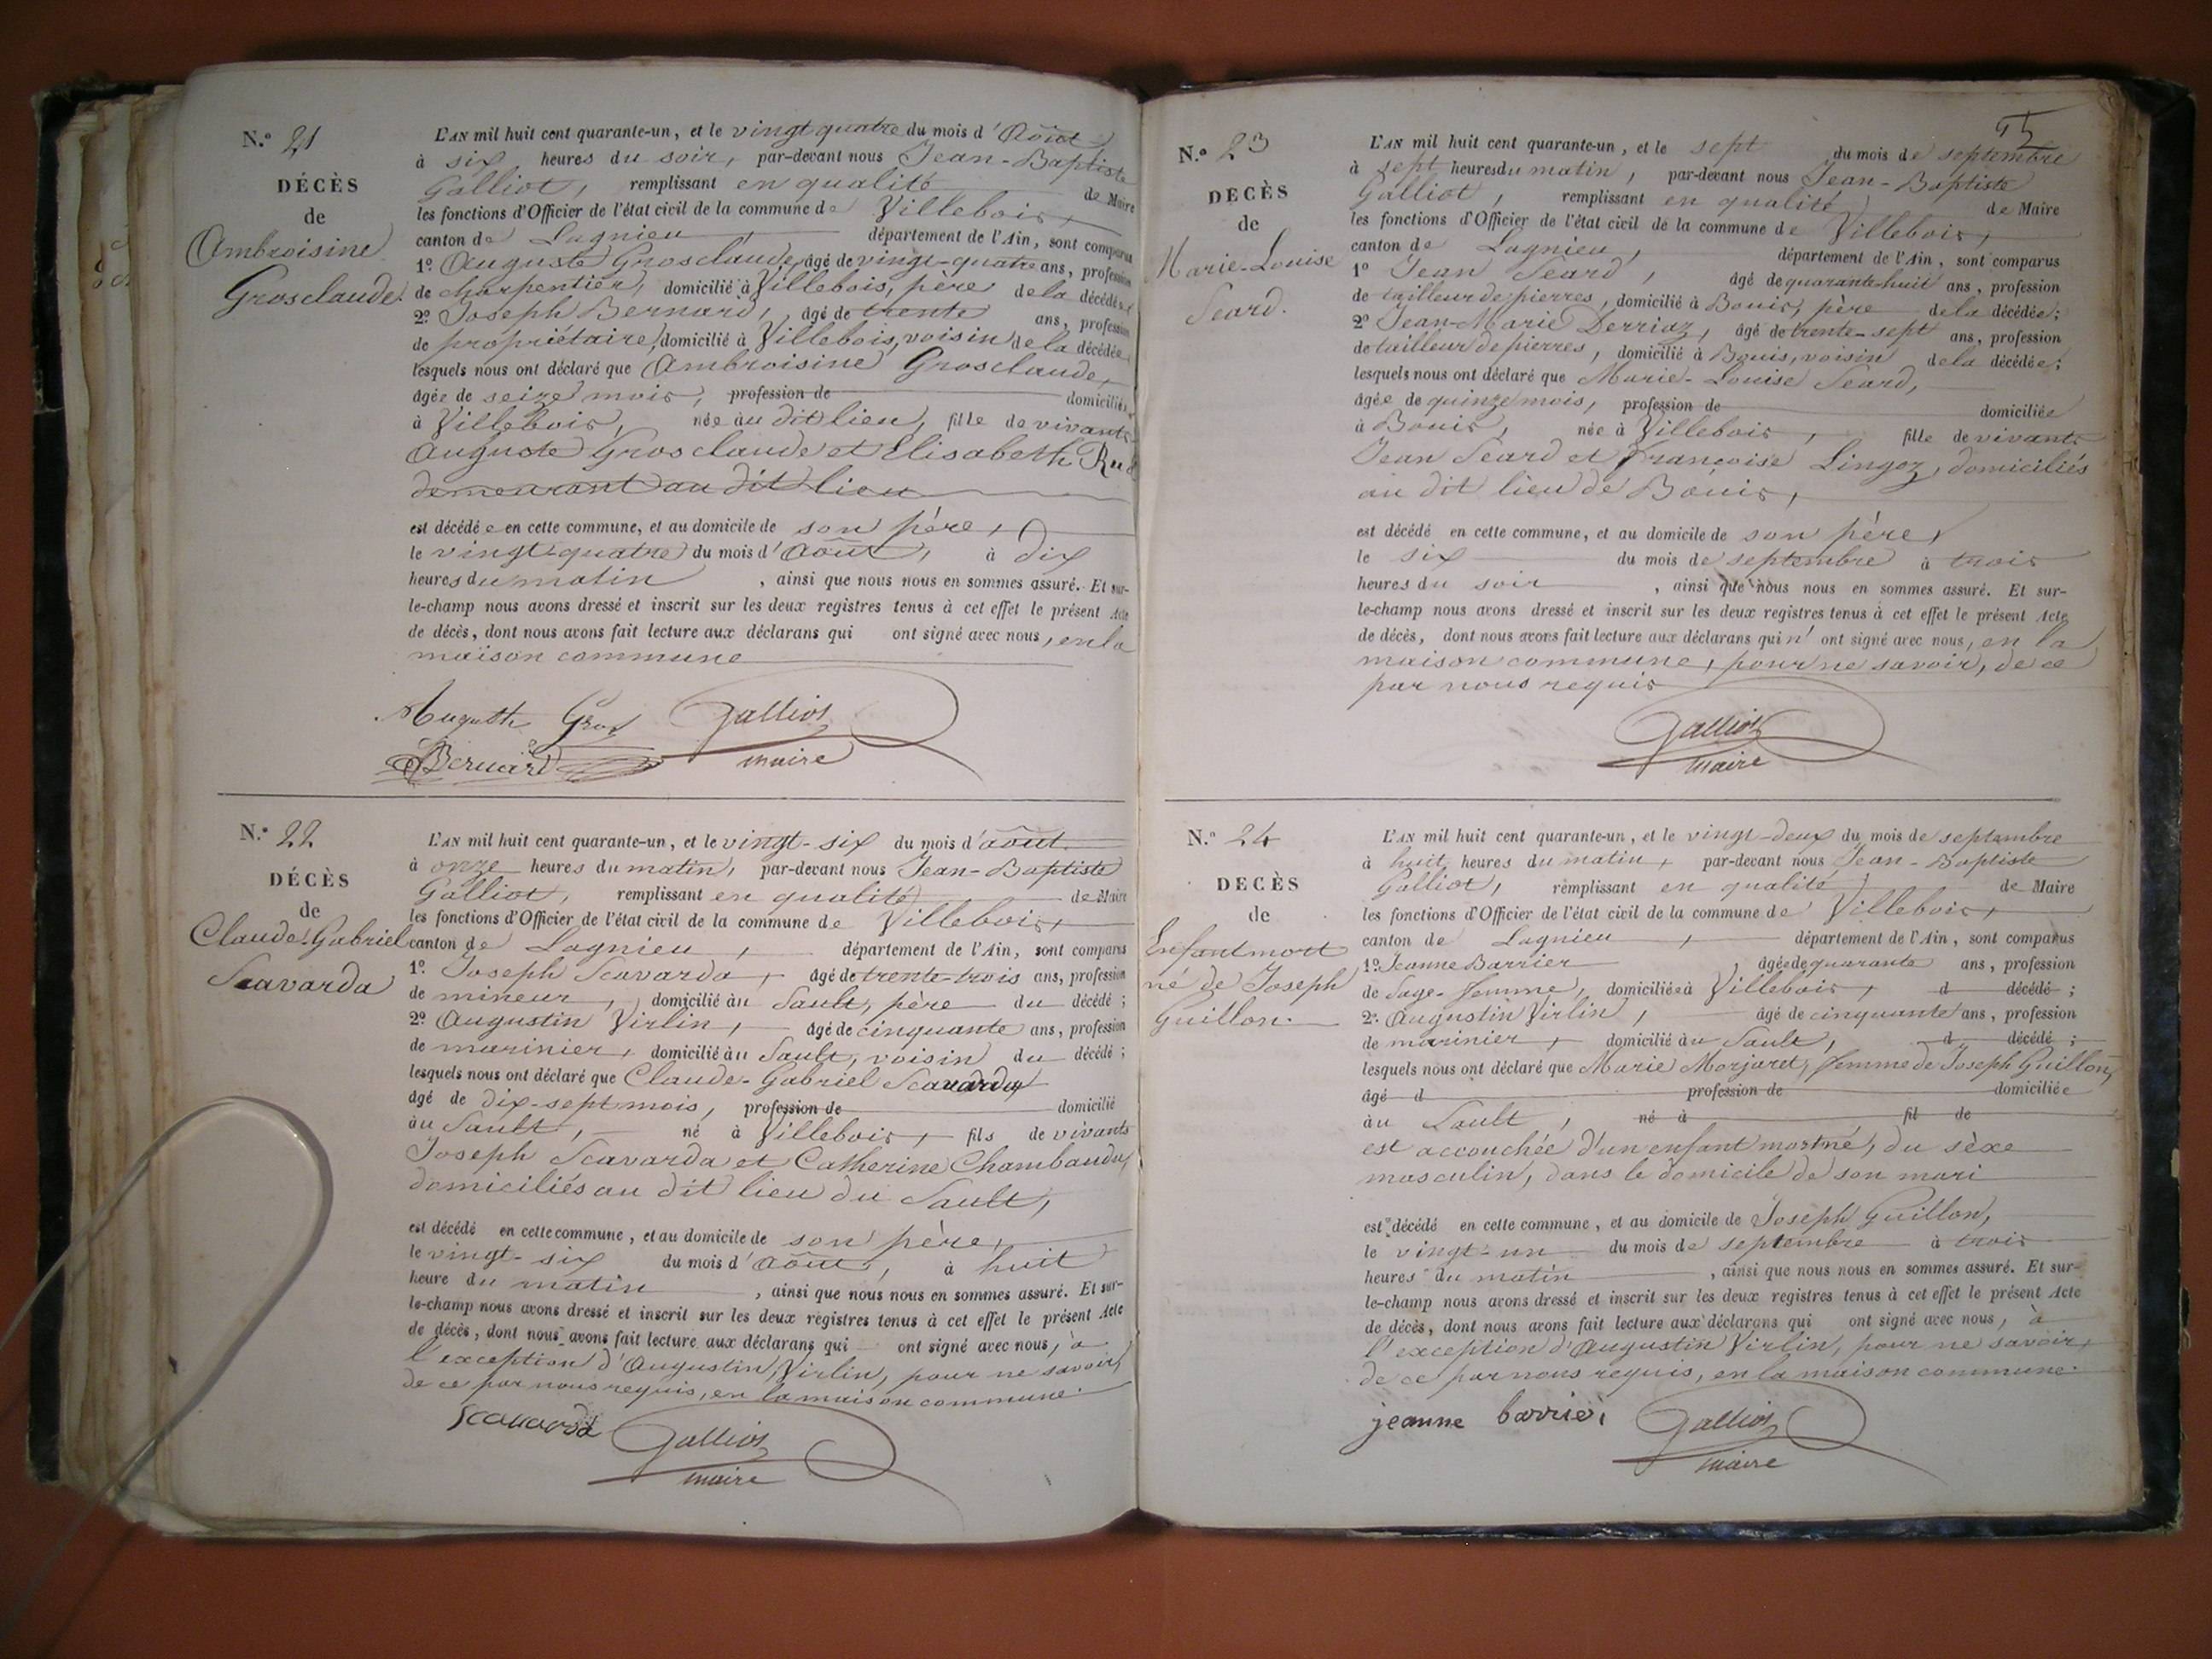 N.° 21
DÉCÈS
de
Ambroisine
Grosclaude.
L'AN mil huit cent quarante-un, et le vingt quatre du mois d'Août
à six heures du soir, par-devant nous Jean-Baptiste
Galliot, remplissant en qualité de Maire
les fonctions d'Officier de l'état civil de la commune de Villebois,
canton de Lagnieu, département de l'Ain, sont comparus
1.° Auguste Grosclaude, âgé de vingt-quatre ans, profession
de charpentier, domicilié à Villebois, père de la décédée
2.° Joseph Bernard, âgé de trente ans, profession
de propriétaire, domicilié à Villebois, voisin de la décédée
lesquels nous ont déclaré que Ambroisine Grosclaude,
âgée de seize mois, profession de domiciliée
à Villebois, née au dit lieu, fille de vivants
Auguste Grosclaude et Elisabeth
demeurant au dit lieu
est décédée en cette commune, et au domicile de son père,
le vingt-quatre du mois d'Août, à dix
heures du matin, ainsi que nous nous en sommes assuré. Et sur-
le-champ nous avons dressé et inscrit sur les deux registres tenus à cet effet le présent Acte
de décès, dont nous avons fait lecture aux déclarans qui ont signé avec nous, en la
maison commune
Auguste Gros Galliot
Bernard maire
N.° 22
DÉCÈS
de
Claude-Gabriel
Scavarda
L'AN mil huit cent quarante-un, et le vingt-six du mois d'août
à onze heures du matin, par-devant nous Jean-Baptiste
Galliot, remplissant en qualité de Maire
les fonctions d'Officier de l'état civil de la commune de Villebois,
canton de Lagnieu, département de l'Ain, sont comparus
1.° Joseph Scavarda, âgé de trente-trois ans, profession
de mineur, domicilié au Sault, père du décédé ;
2.° Augustin Virlin, âgé de cinquante ans, profession
de marinier, domicilié au Sault, voisin du décédé ;
lesquels nous ont déclaré que Claude-Gabriel Scavarda
âgé de dix-sept mois, profession de domicilié
au Sault, né à Villebois, fils de vivants
Joseph Scavarda et Catherine Chambaudu,
domiciliés au dit lieu du Sault,
est décédé en cette commune, et au domicile de son père,
le vingt-six du mois d'Août, à huit
heure du matin, ainsi que nous nous en sommes assuré. Et sur-
le-champ nous avons dressé et inscrit sur les deux registres tenus à cet effet le présent Acte
de décès, dont nous avons fait lecture aux déclarans qui ont signé avec nous, à
l'exception d'Augustin Virlin, pour ne savoir,
de ce par nous requis, en la maison commune.
Scavarda Galliot
maire
95
N.° 23
DÉCÈS
de
Marie-Louise
Seard.
L'AN mil huit cent quarante-un, et le sept du mois de septembre
à sept heures du matin, par-devant nous Jean-Baptiste
Galliot, remplissant en qualité de Maire
les fonctions d'Officier de l'état civil de la commune de Villebois,
canton de Lagnieu, département de l'Ain, sont comparus
1.° Jean Seard, âgé de quarante-huit ans, profession
de tailleur de pierres, domicilié à Bouis, père de la décédée ;
2.° Jean-Marie Derriaz, âgé de trente-sept ans, profession
de tailleur de pierres, domicilié à Bouis, voisin de la décédée ;
lesquels nous ont déclaré que Marie-Louise Seard,
âgée de quinze mois, profession de domiciliée
à Bouis, née à Villebois, fille de vivants
Jean Seard et françoise Lingoz, domiciliés
au dit lieu de Bouis,
est décédé en cette commune, et au domicile de son père,
le six du mois de septembre à trois
heures du soir, ainsi que nous nous en sommes assuré. Et sur-
le-champ nous avons dressé et inscrit sur les deux registres tenus à cet effet le présent Acte
de décès, dont nous avons fait lecture aux déclarans qui n'ont signé avec nous, en la
maison commune, pour ne savoir, de ce
par nous requis
Galliot
maire
N.° 24
DÉCÈS
de
Enfant mort
né de Joseph
Guillon.
L'AN mil huit cent quarante-un, et le vingt-deux du mois de septembre
à huit heures du matin, par-devant nous Jean-Baptiste
Galliot, remplissant en qualité de Maire
les fonctions d'Officier de l'état civil de la commune de Villebois,
canton de Lagnieu, département de l'Ain, sont comparus
1.° Jeanne Barrier, âgée de quarante ans, profession
de Sage-femme, domiciliée à Villebois, d décédé ;
2.° Augustin Virlin, âgé de cinquante ans, profession
de marinier, domicilié au Sault, d décédé ;
lesquels nous ont déclaré que Marie Morjaret, femme de Joseph Guillon,
âgé d profession de domiciliée
au Sault, né à fil de
est accouchée d'un enfant mort né, du sèxe
masculin, dans le domicile de son mari
est décédé en cette commune, et au domicile de Joseph Guillon,
le vingt-un du mois de septembre à trois
heures du matin, ainsi que nous nous en sommes assuré. Et sur-
le-champ nous avons dressé et inscrit sur les deux registres tenus à cet effet le présent Acte
de décès, dont nous avons fait lecture aux déclarans qui ont signé avec nous, à
l'exception d'Augustin Virlin, pour ne savoir,
de ce par nous requis, en la maison commune.
jeanne barrier Galliot
maire